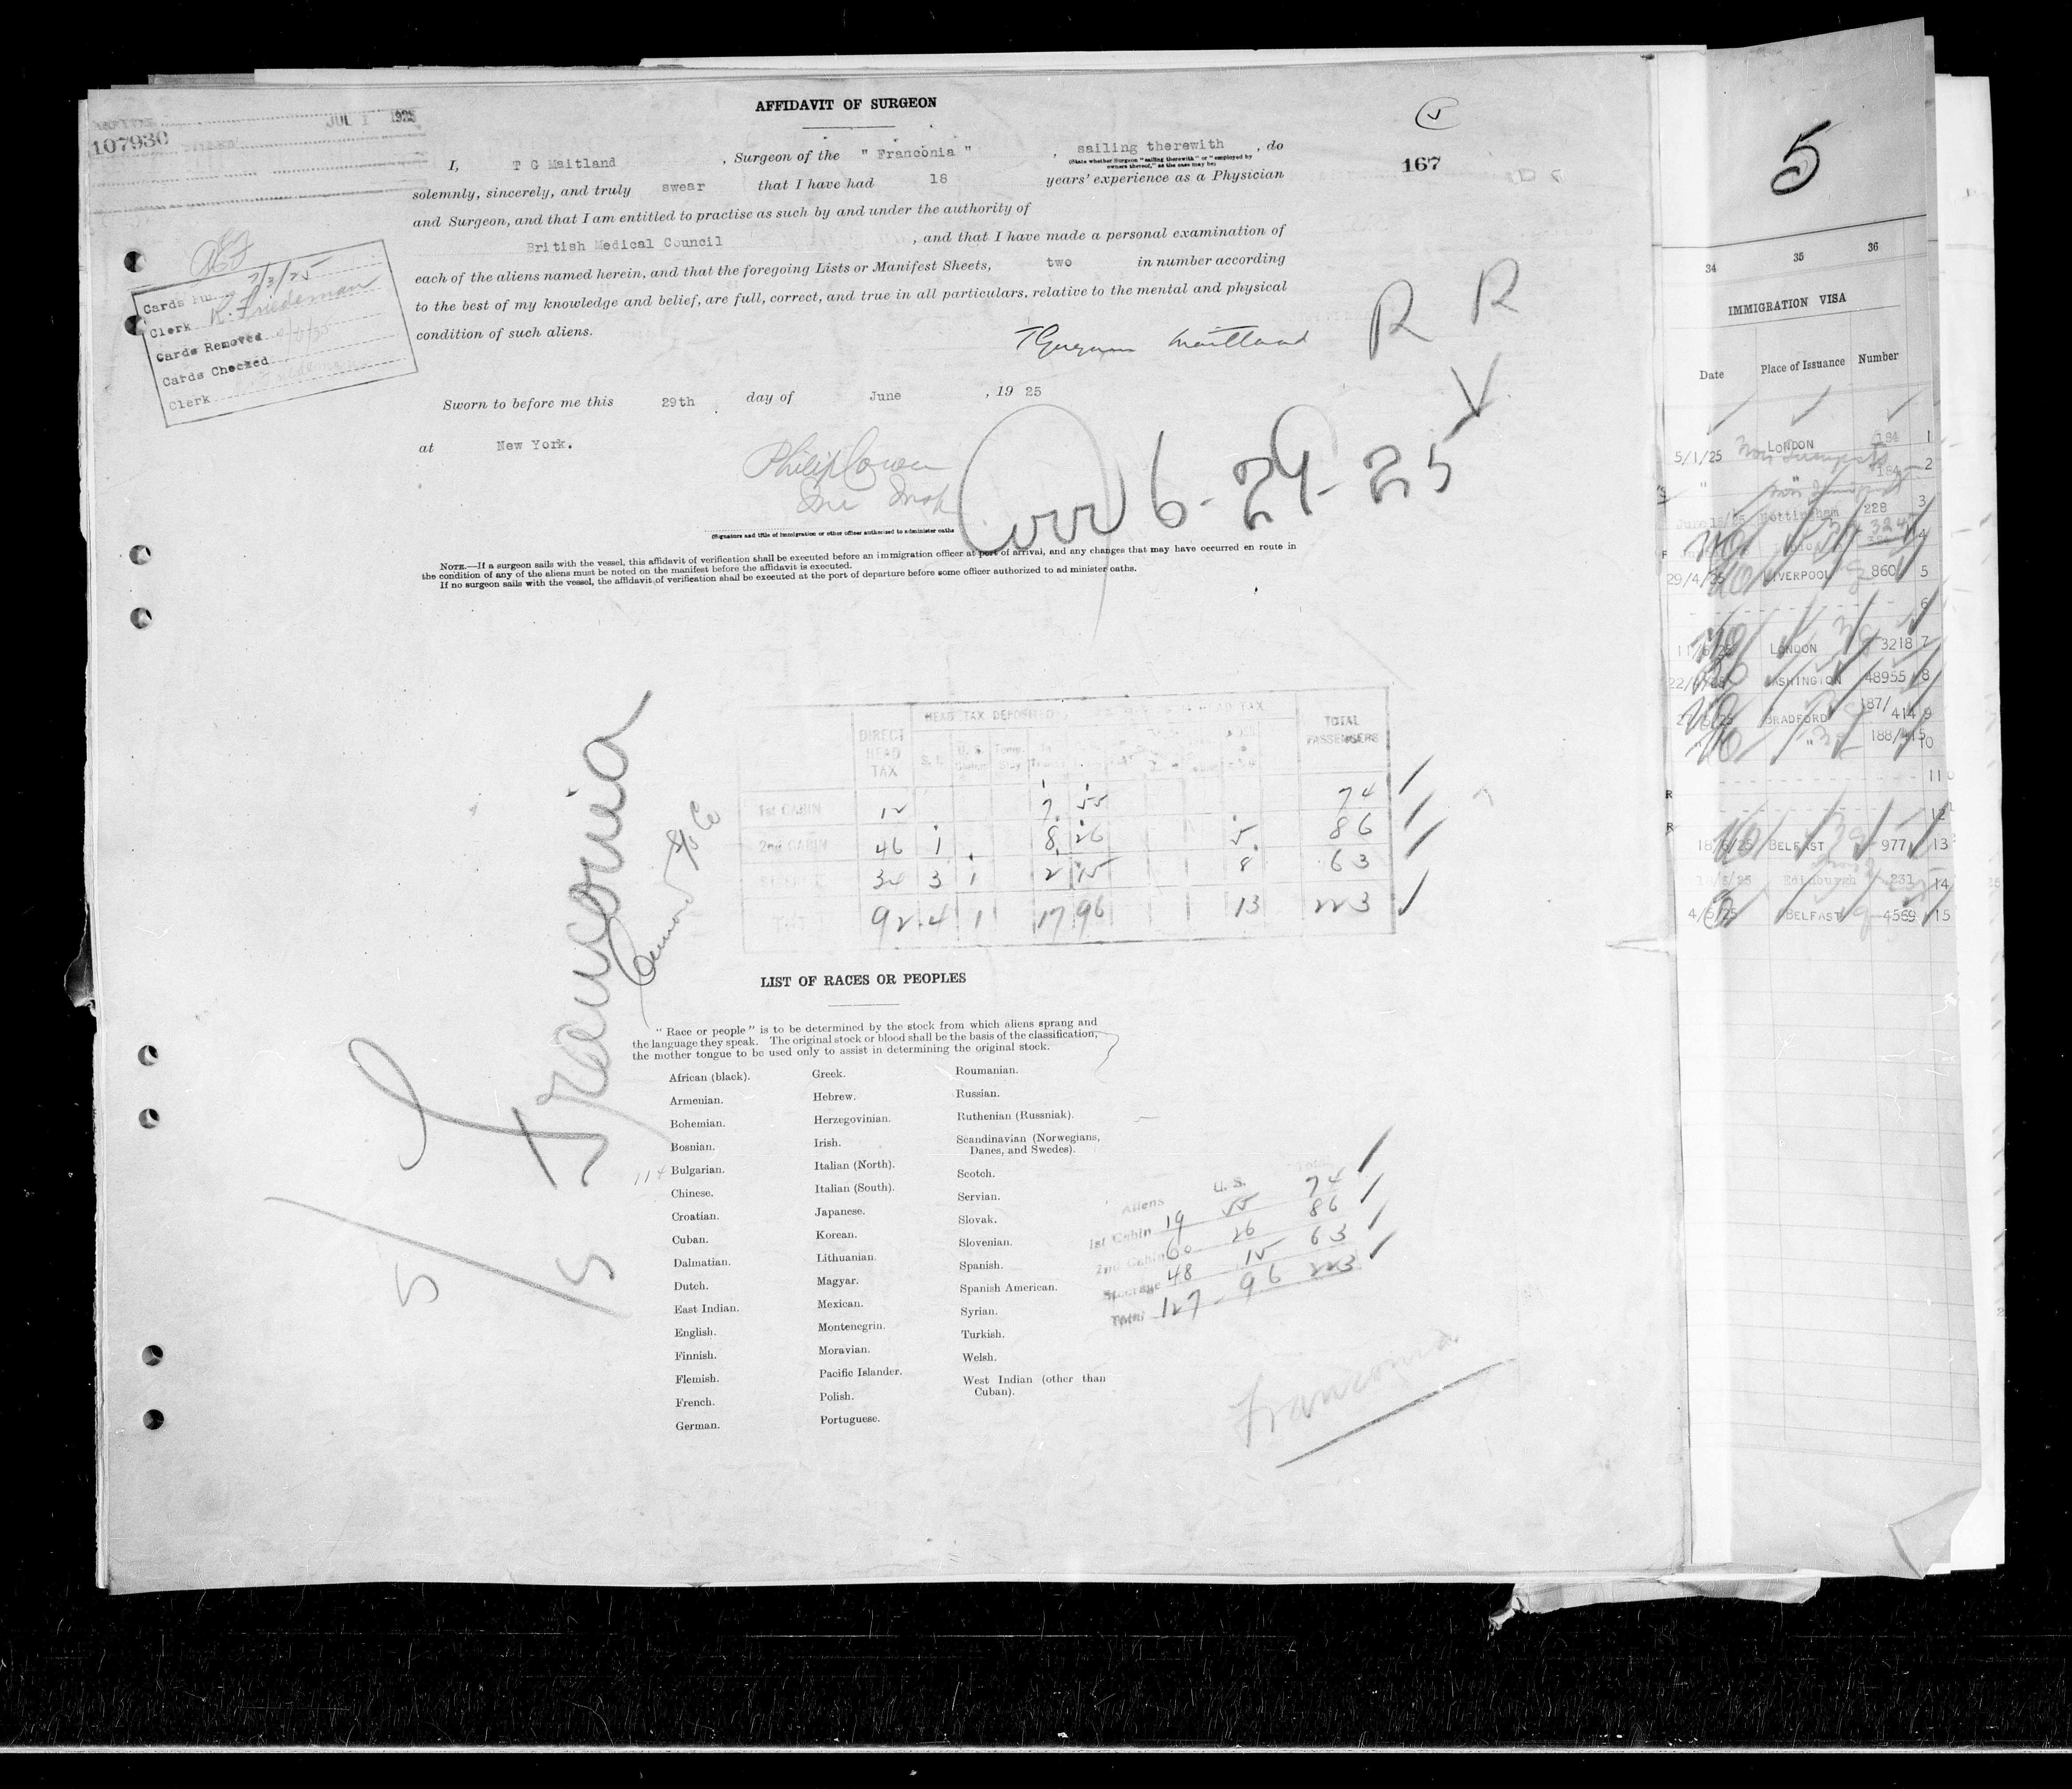 JUL 1 1925
107930
AFFIDAVIT OF SURGEON
167
5
I, T G Maitland, Surgeon of the "Franconia", sailing therewith, do
(State whether Surgeon "sailing therewith" or "employed by owners thereof," as the case may be)
solemnly, sincerely, and truly swear that I have had 18 years' experience as a Physician
and Surgeon, and that I am entitled to practise as such by and under the authority of
British Medical Council, and that I have made a personal examination of
each of the aliens named herein, and that the foregoing Lists or Manifest Sheets, two in number according
to the best of my knowledge and belief, are full, correct, and true in all particulars, relative to the mental and physical
condition of such aliens.
Maitland
R R
Cards 7/3/25
Clerk K. Friedeman
Cards Removed
Cards Checked
Clerk
Sworn to before me this 29th day of June, 1925
at New York.
Philip Cowen
Arr 6-29-25
(Signature and title of immigration or other officer authorized to administer oaths
NOTE.—If a surgeon sails with the vessel, this affidavit of verification shall be executed before an immigration officer at port of arrival, and any changes that may have occurred en route in
the condition of any of the aliens must be noted on the manifest before the affidavit is executed.
If no surgeon sails with the vessel, the affidavit of verification shall be executed at the port of departure before some officer authorized to ad minister oaths.
Franconia
Cunard SS Co
HEAD TAX DEPOSITED HEAD TAX
DIRECT HEAD TAX S. I. U. S. Temp. Stay TOTAL PASSENGERS
1st CABIN 12 7 55 74
2nd CABIN 46 1 8 26 5 86
34 3 1 2 15 8 63
92 4 1 17 96 13 223
LIST OF RACES OR PEOPLES
"Race or people" is to be determined by the stock from which aliens sprang and
the language they speak. The original stock or blood shall be the basis of the classification,
the mother tongue to be used only to assist in determining the original stock.
African (black).
Armenian.
Bohemian.
Bosnian.
114 Bulgarian.
Chinese.
Croatian.
Cuban.
Dalmatian.
Dutch.
East Indian.
English.
Finnish.
Flemish.
French.
German.
Greek.
Hebrew.
Herzegovinian.
Irish.
Italian (North).
Italian (South).
Japanese.
Korean.
Lithuanian.
Magyar.
Mexican.
Montenegrin.
Moravian.
Pacific Islander.
Polish.
Portuguese.
Roumanian.
Russian.
Ruthenian (Russniak).
Scandinavian (Norwegians,
Danes, and Swedes).
Scotch.
Servian.
Slovak.
Slovenian.
Spanish.
Spanish American.
Syrian.
Turkish.
Welsh.
West Indian (other than
Cuban).
Aliens U. S. Total
1st Cabin 19 55 74
2nd Cabin 60 26 86
Steerage 48 15 63
Total 127 96 223
Franconia
5
5
34 35 36
IMMIGRATION VISA
Date Place of Issuance Number
5/1/25 LONDON 184 1
" 184 2
Nottingham 228 3
4
29/4/25 LIVERPOOL 860 5
6
LONDON 3218 7
WASHINGTON 48955 8
BRADFORD 187/414 9
" 188/415 10
R 11
R 12
18/6/25 BELFAST 977 13
Edinburgh 231 14
4/5/25 BELFAST 4569 15